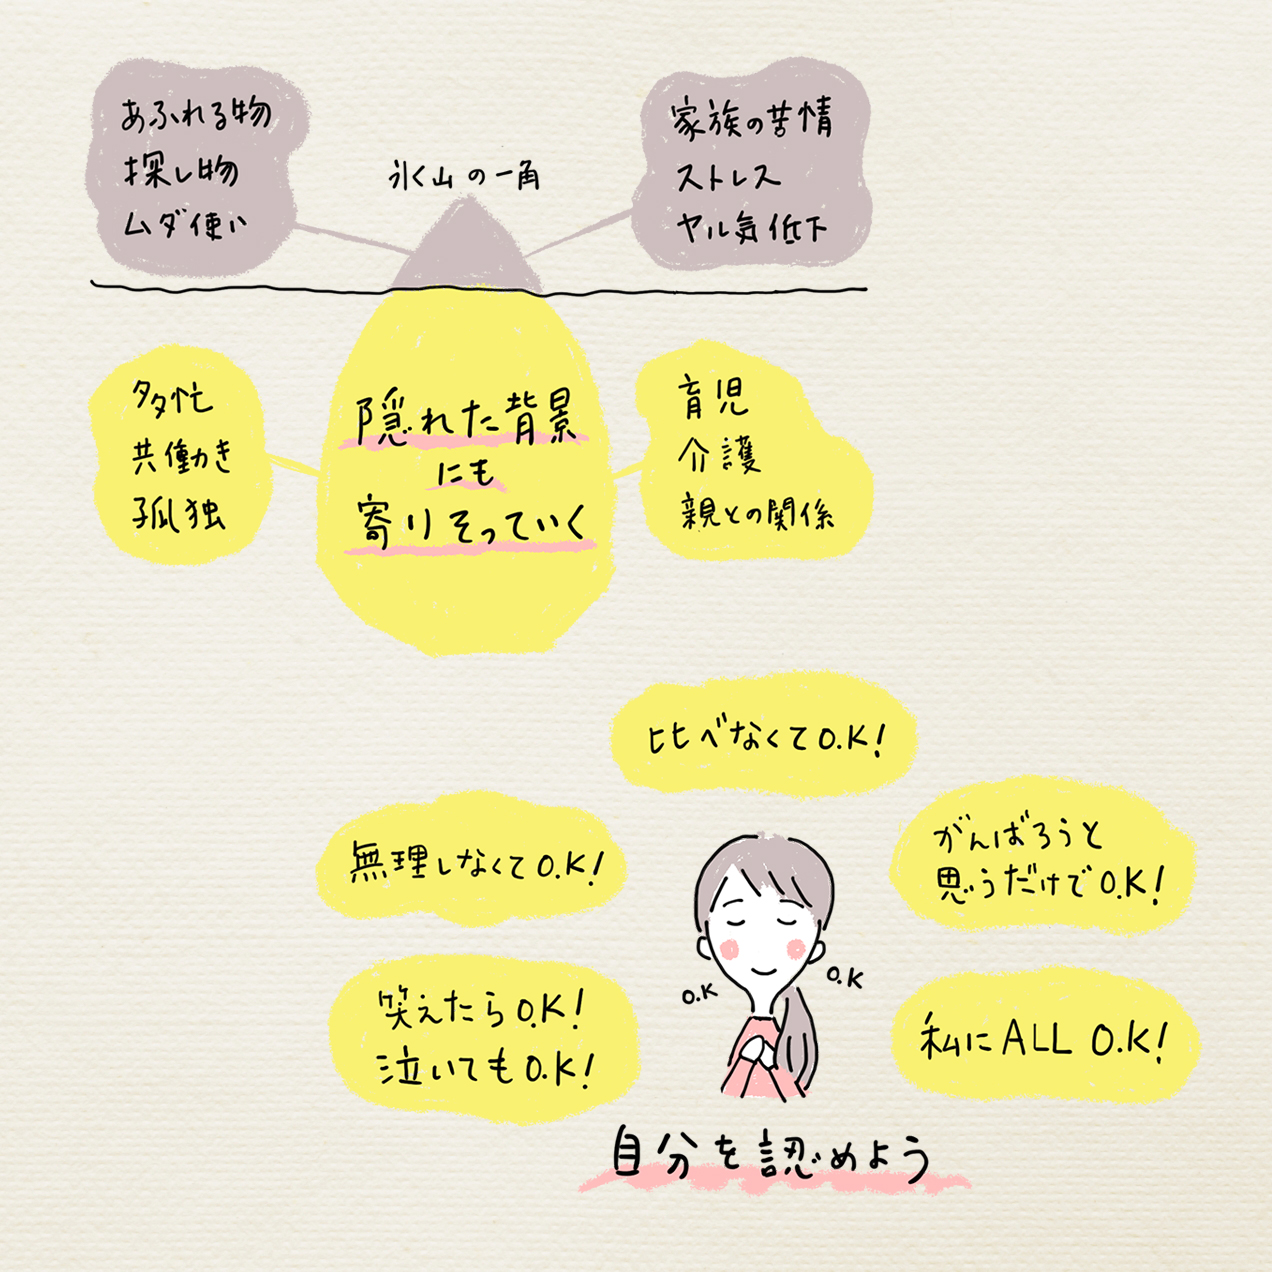 あふれる物
探し物
ムダ使い
氷山の一角
家族の苦情
ストレス
ヤル気低下
多忙
共働き
孤独
隠れた背景
にも
寄りそっていく
育児
介護
親との関係
比べなくてO.K!
無理しなくてO.K!
がんばろうと
思うだけでO.K!
笑えたらO.K!
泣いてもO.K!
O.K
O.K
私にALL O.K!
自分を認めよう